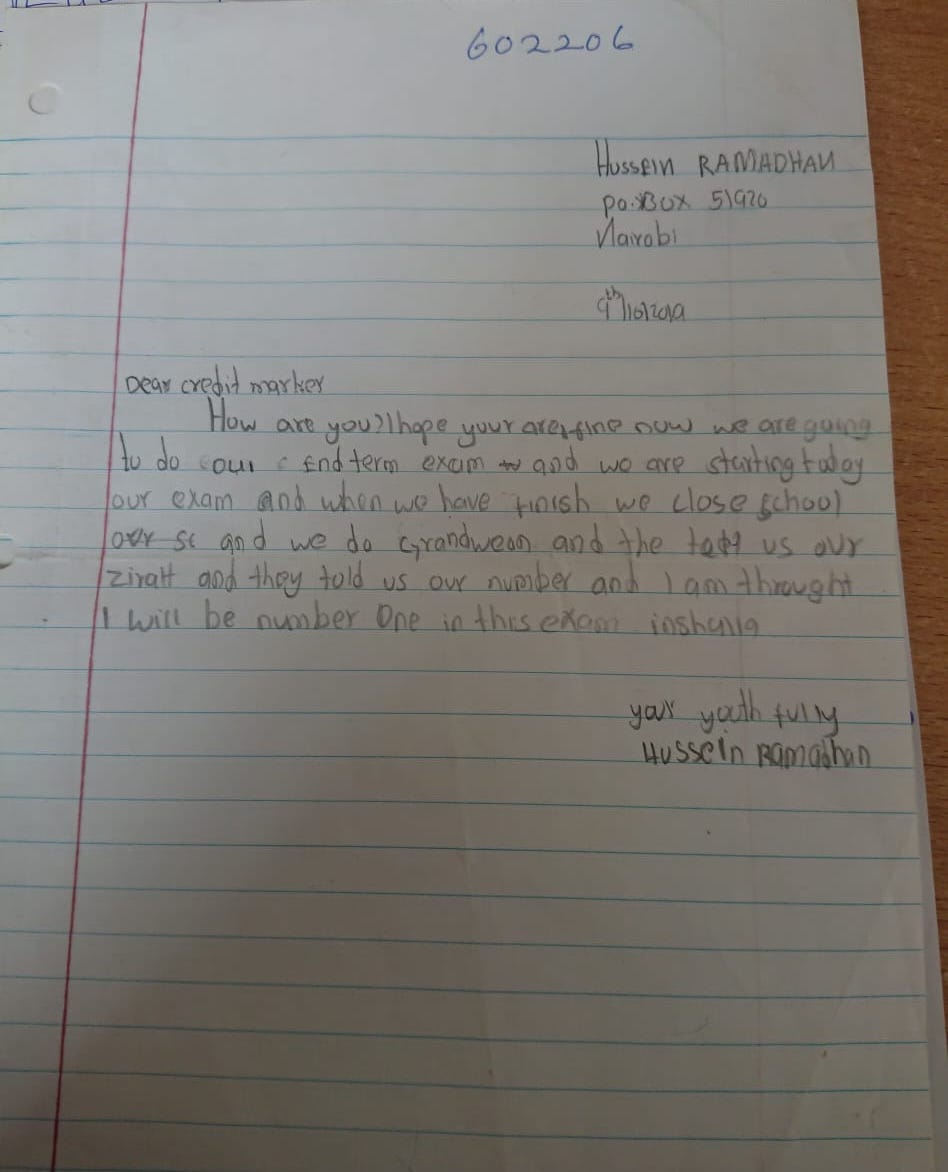 602206
Hussein RAMADHAN
po.Box 51920
Nairobi
9th/10/2019
Dear credit marker
How are you? I hope your are fine now we are going
to do our End term exam and we are starting today
our exam and when we have finish we close school
and we do Grandwean and the us our
ziratt and they told us our number and I am throught
I will be number One in this exam inshalla
your youth fully
Hussein Ramadhan